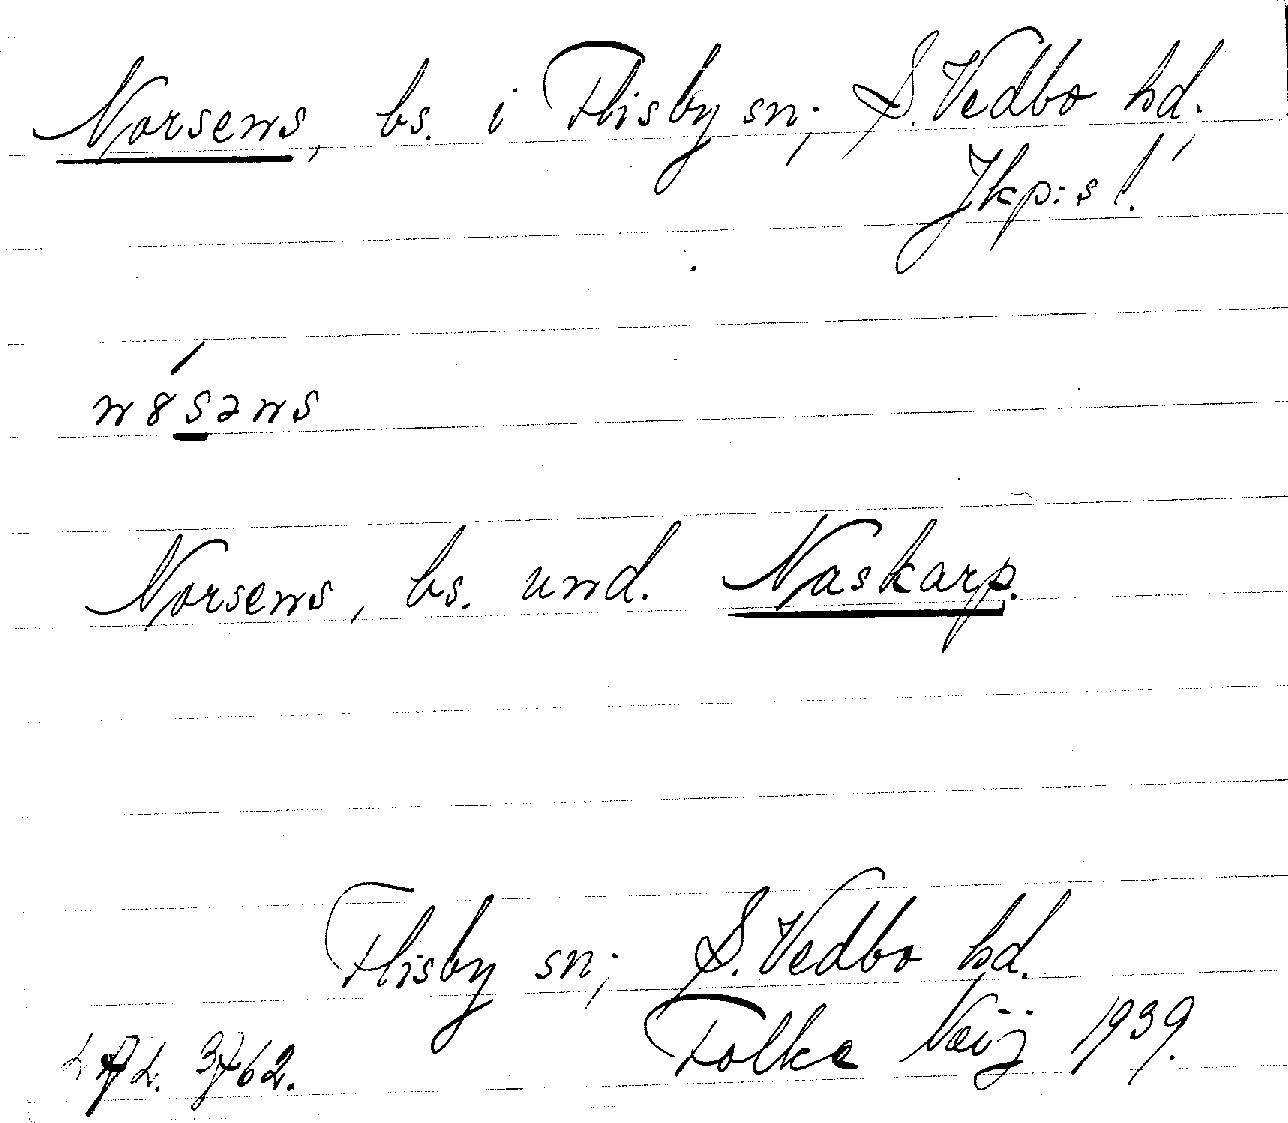 Norsens, bs. i Flisby sn; S. Vedbo hd;
Jkp:s l.
Norsens, bs. und. Naskarp.
Flisby sn; S. Vedbo hd.
Folke Neij 1939.